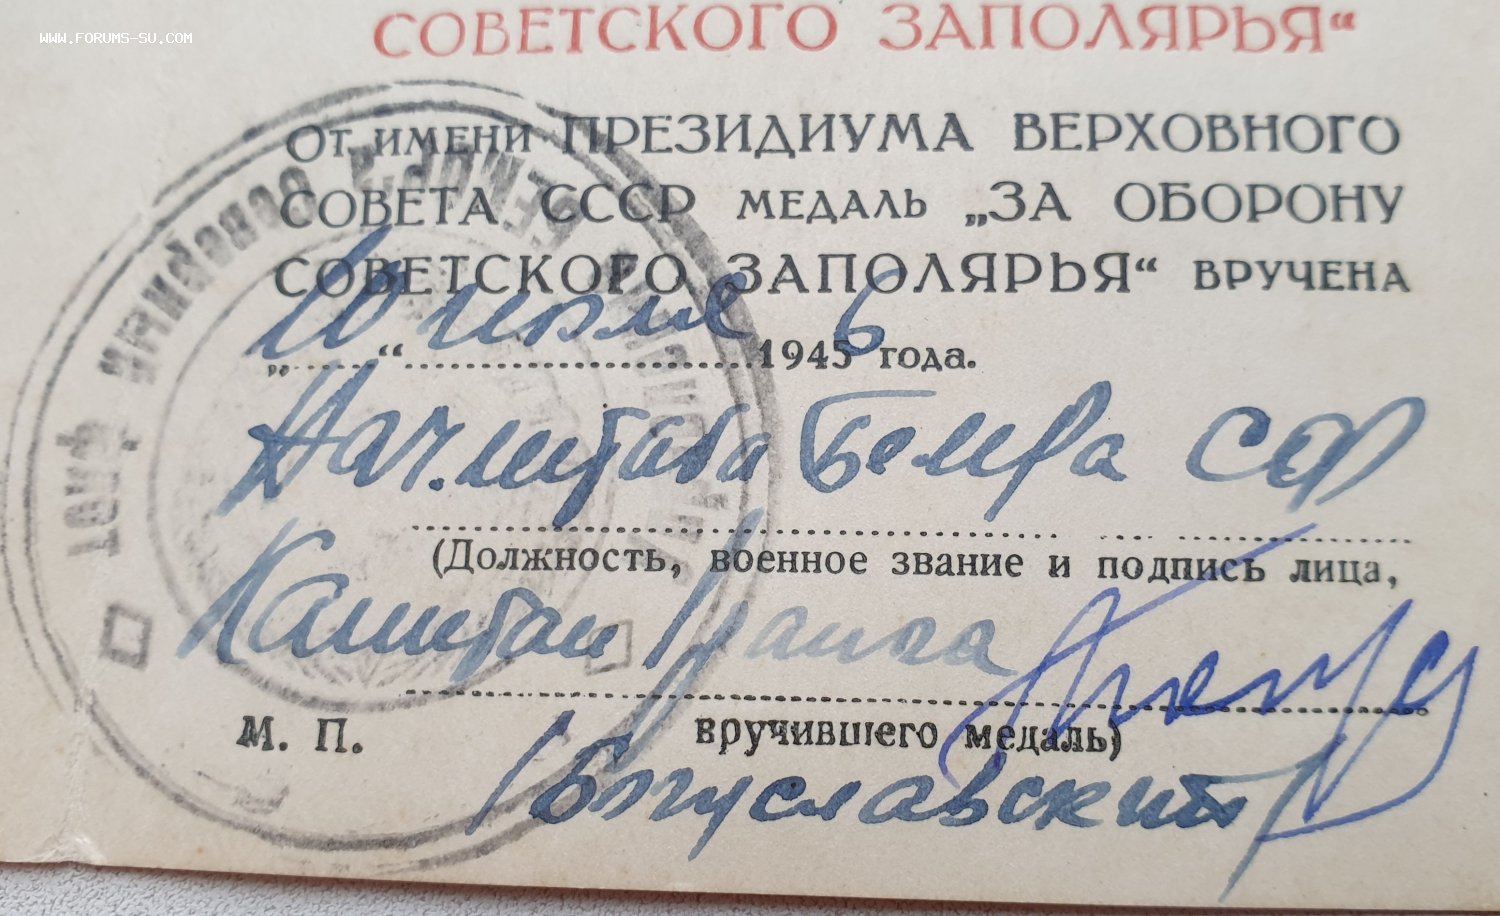 WWW.FORUMS-SU.COM
СОВЕТСКОГО ЗАПОЛЯРЬЯ“
От имени ПРЕЗИДИУМА ВЕРХОВНОГО
СОВЕТА СССР медаль „ЗА ОБОРОНУ
СОВЕТСКОГО ЗАПОЛЯРЬЯ“ вручена
„10“ июля 1946 года.
Нач. штаба Бемра СФ
(Должность, военное звание и подпись лица,
Капитан 1 ранга
М. П. вручившего медаль)
/Богуславский/
Северный флот